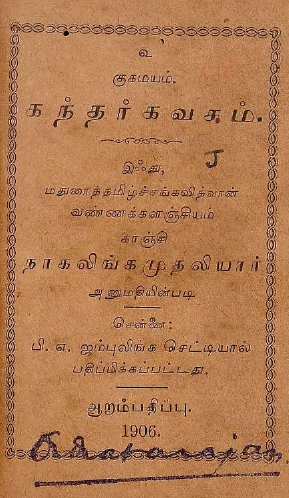 உ
குகமயம்.
கந்தர்கவசம்.
இஃது,
மதுரைத்தமிழ்ச்சங்கவித்வான்
வண்ணக்களஞ்சியம்
காஞ்சி
நாகலிங்கமுதலியார்
அனுமதியின்படி
சென்னை:
பி. எ. ஜம்புலிங்க செட்டியால்
பதிப்பிக்கப்பட்டது.
ஆறாம்பதிப்பு.
1906.